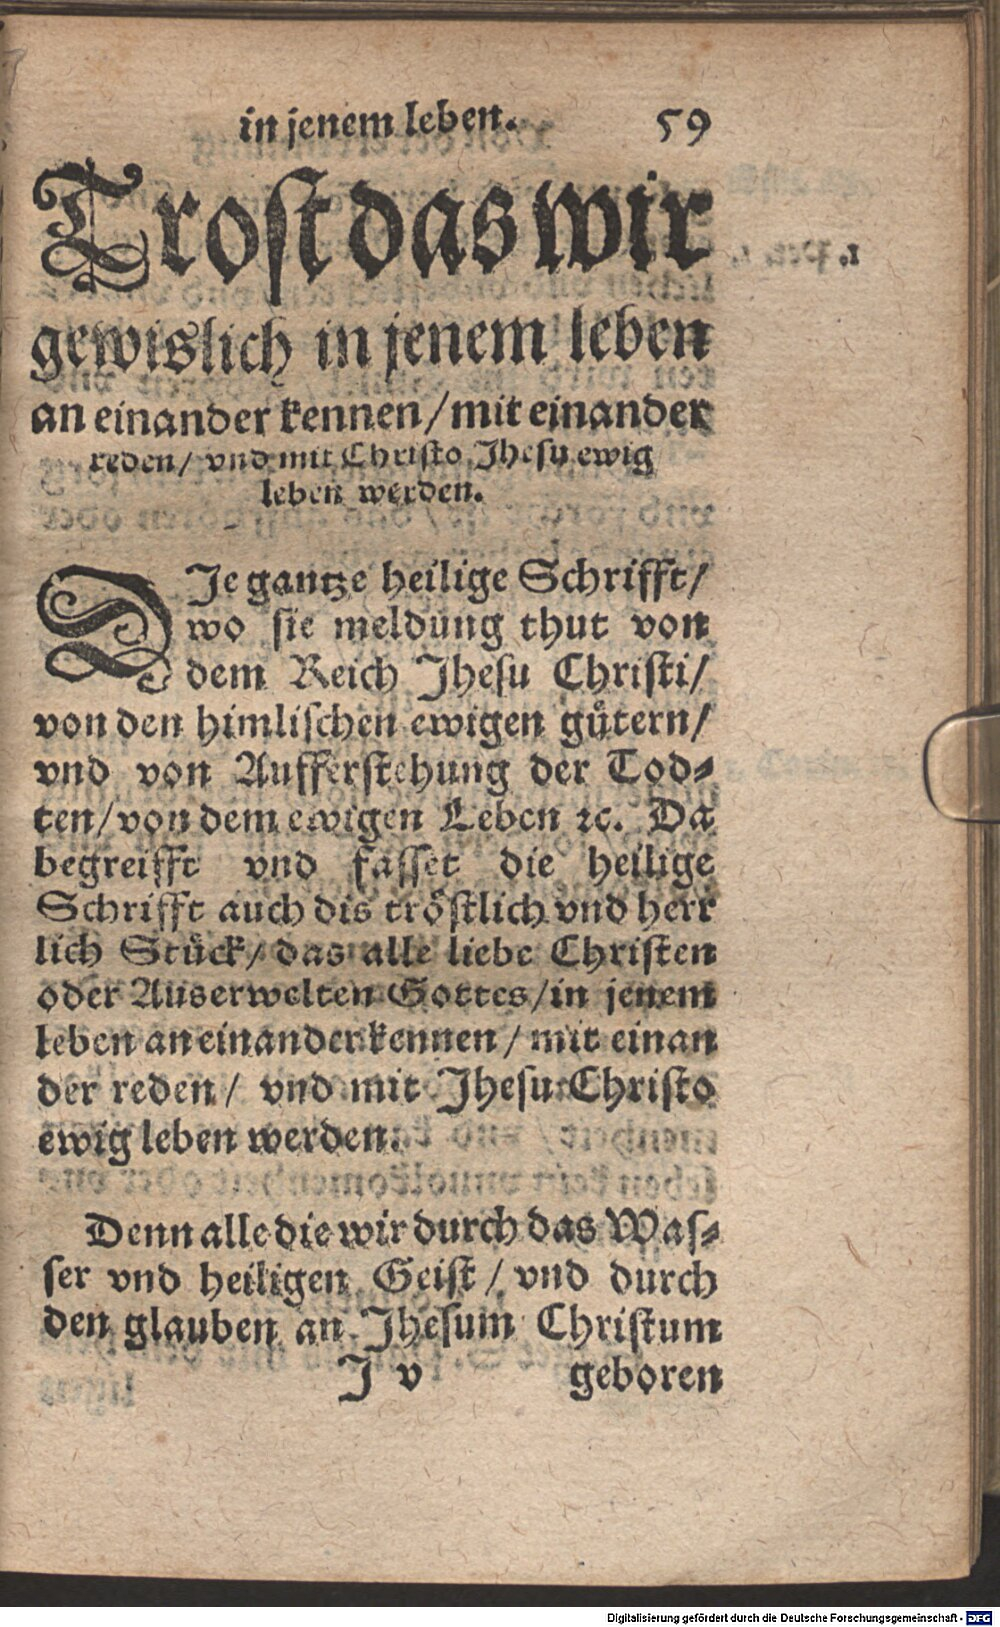 in jenem leben. 59
Trost das wir
gewislich in jenem leben
an einander kennen/mit einander
reden/ vnd mit Christo Jhesu ewig
leben werden.
DJe gantze heilige Schrifft/
wo sie meldung thut von
dem Reich Jhesu Christi/
von den himlischen ewigen guͤtern/
vnd von Aufferstehung der Tod⸗
ten/von dem ewigen Leben ꝛc. Da
begreifft vnd fasset die heilige
Schrifft auch dis troͤstlich vnd herr
lich Stuͤck/ das alle liebe Christen
oder Auserwelten Gottes/in jenem
leben an einander kennen/ mit einan
der reden/ vnd mit Jhesu Christo
ewig leben werden.
Denn alle die wir durch das Was⸗
ser vnd heiligen Geist/ vnd durch
den glauben an Jhesum Christum
J v geboren
Digitalisierung gefördert durch die Deutsche Forschungsgemeinschaft - DFG